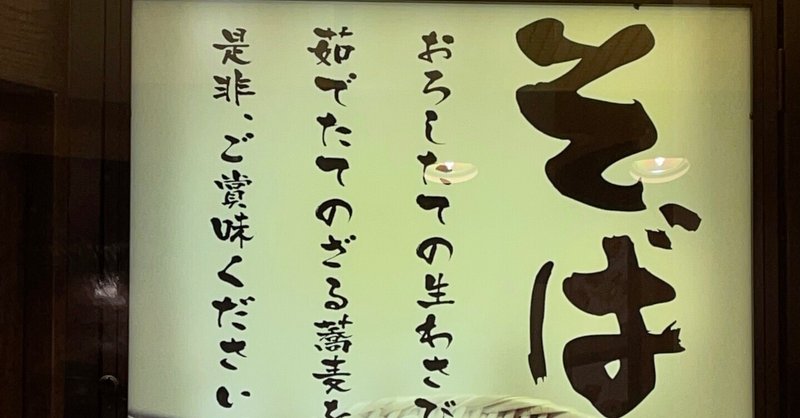 そば
おろしたての生わさび
茹でたてのざる蕎麦を
是非、ご賞味ください